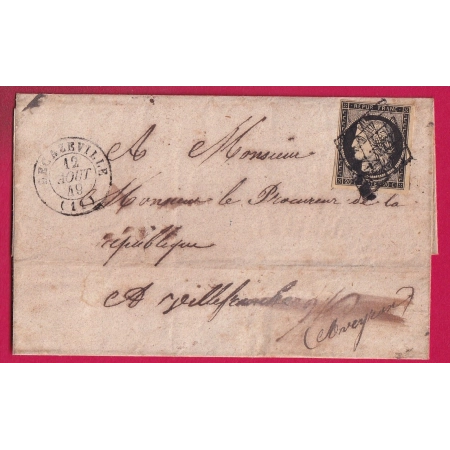 REPUB. FRANC.
DECAZEVILLE
12
AOUT
49
(11)
A Monsieur
Monsieur le Procureur de la
république
A Villefranche
(Aveyron)